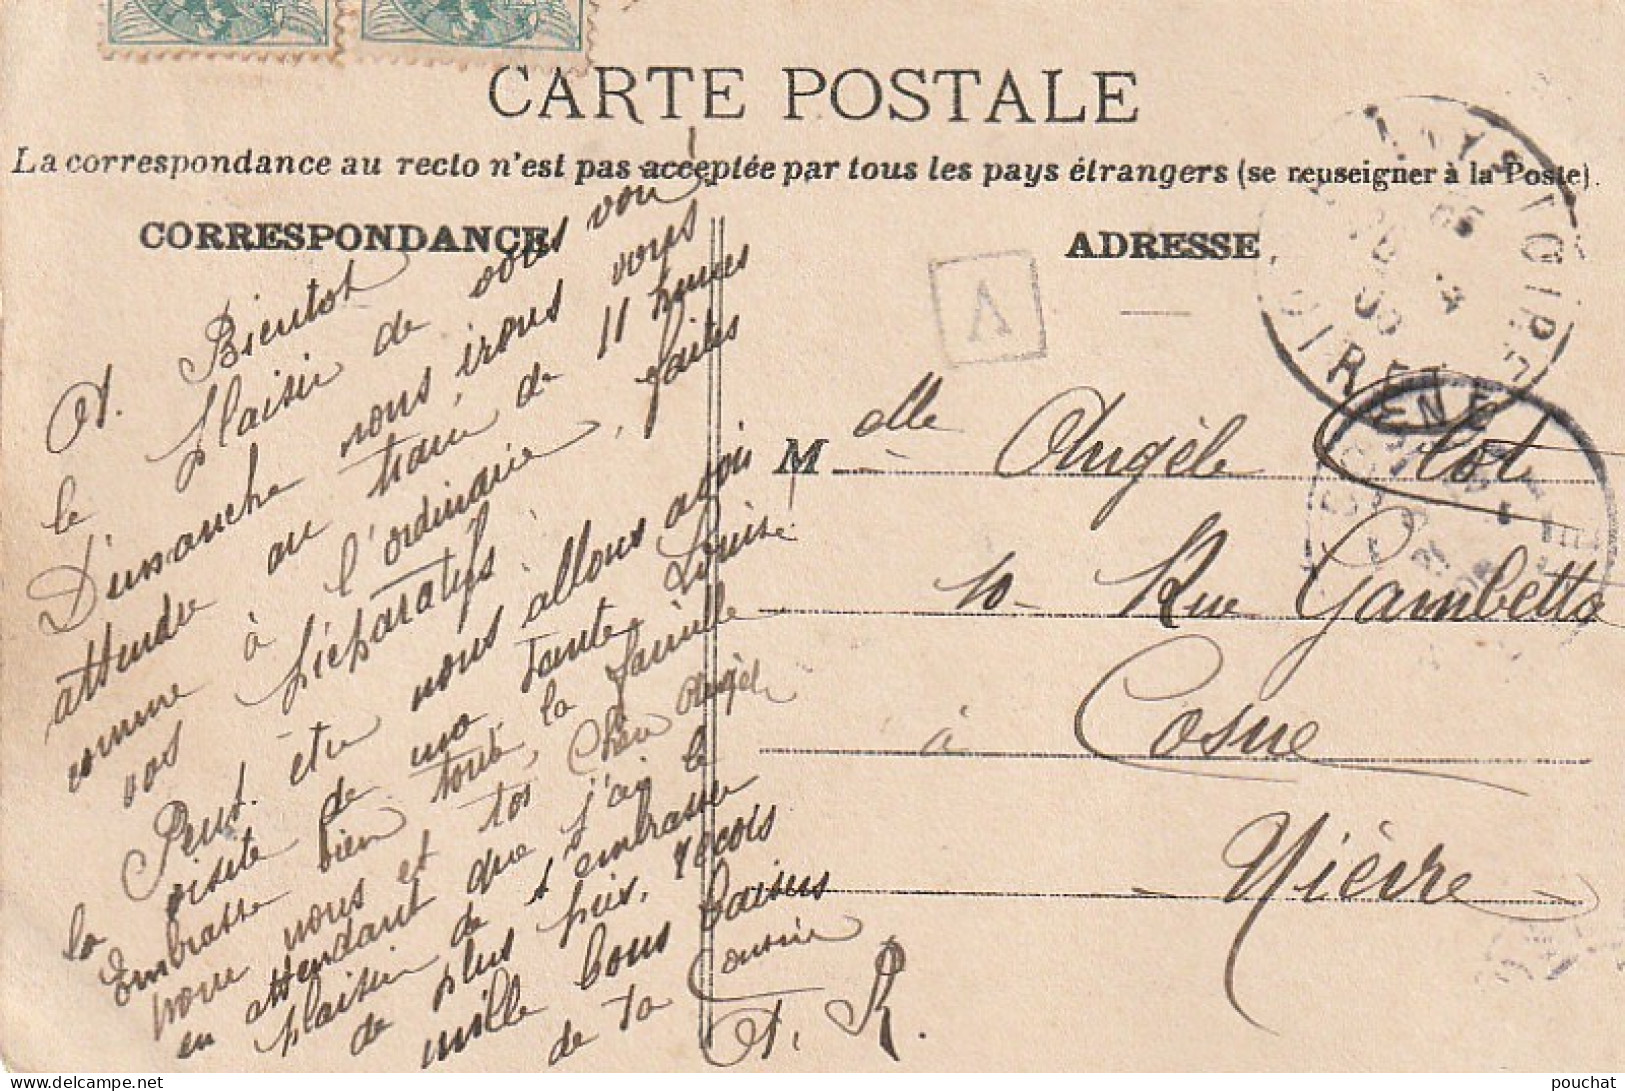 CARTE POSTALE
La correspondance au recto n'est pas acceptée par tous les pays étrangers (se renseigner à la Poste).
CORRESPONDANCE
A. Bientot
le plaisir de vous voir
Dimanche nous irons vous
attendre au train de 11 heures
comme à l'ordinaire, faites
vos préparatifs.
Peut-être nous allons avoir
la visite de ma tante Louise
Embrasse bien toute la famille
pour nous et toi Chère Angèle
en attendant que j'ai le
plaisir de t'embrasser
de plus près, reçois
mille bons baisers
de ta Cousine
A. R.
ADRESSE
A
Melle Angèle Clot
10 Rue Gambetta
à Cosne
Nièvre
pouchat